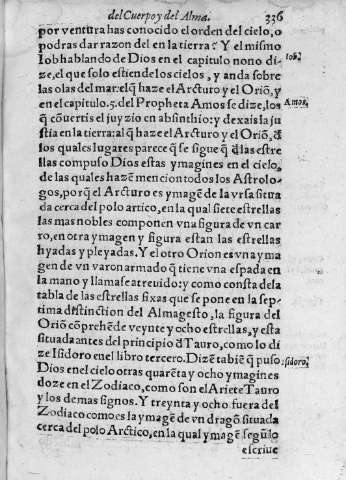 del Cuerpo y del Alma. 336
por ventura has conocido el orden del cielo, o
podras dar razon del en la tierra? Y el mismo
Iob hablando de Dios en el capitulo nono di-
ze, el que solo estiende los cielos, y anda sobre
las olas del mar: elq̃ haze el Arcturo y el Oriõ, y
en el capitulo.5. del Propheta Amos se dize, los
q̃ cõuertis el juyzio en absinthio: y dexais la ju
stia en la tierra: al q̃ haze el Arcturo y el Oriõ, d̃
los quales lugares parece q̃ se sigue q̃ d̃ las estre
llas compuso Dios estas ymagines en el cielo,
de las quales hazẽ mencion todos los Astrolo-
gos, porq̃ el Arcturo es ymagẽ de la vrsa situa
da cerca del polo artico, en la qual siete estrellas
las mas nobles componen vna figura de vn car
ro, en otra ymagen y figura estan las estrellas
hyadas y pleyadas. Y el otro Orion es vna yma
gen de vn varon armado q̃ tiene vna espada en
la mano y llamase atreuido: y como consta de la
tabla de las estrellas fixas que se pone en la sep-
tima distinction del Almagesto, la figura del
Oriõ comprehẽde veynte y ocho estrellas, y esta
situada antes del principio d̃ Tauro, como lo di
ze Isidoro en el libro tercero. Dizẽ tabiẽ q̃ puso
Dios en el cielo otras quarẽta y ocho ymagines
doze en el Zodiaco, como son el Ariete Tauro
y los demas signos. Y treynta y ocho fuera del
Zodiaco como es la ymagẽ de vn dragõ situada
cerca del polo Arctico, en la qual ymagẽ segũ lo
escriue
Iob.
Amos.
Isidoro.